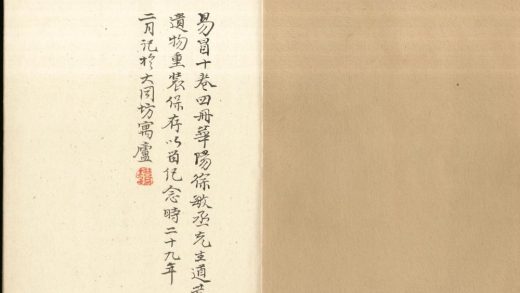 易冒十卷四冊華陽徐敏丞先生道
遺物重裝保存以留紀念時二十九年
二月記於大同坊寓廬